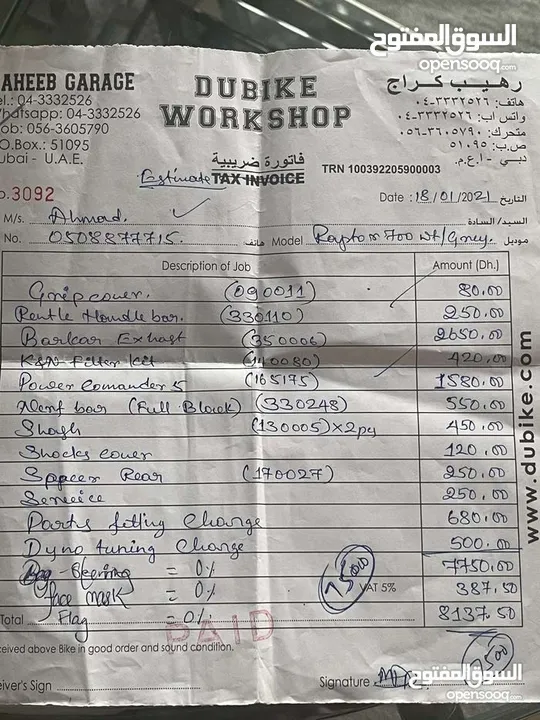 السوق المفتوح
opensooq.com
AHEEB GARAGE
DUBIKE
WORKSHOP
رهيب كراج
el.: 04-3332526
hatsapp: 04-3332526
ob: 056-3605790
O.Box.: 51095
ubai - U.A.E.
هاتف: ٠٤-٣٣٣٢٥٢٦
واتس اب: ٠٤-٣٣٣٢٥٢٦
متحرك: ٠٥٦-٣٦٠٥٧٩٠
ص.ب: ٥١٠٩٥
دبي - ا.ع.م.
فاتورة ضريبية
Estimate TAX INVOICE
TRN 100392205900003
o. 3092
Date : 18/01/2021 التاريخ
M/s. Ahmad. السيد/السادة
No. 0508877715. هاتف Model Raptor 700 wt/Grey. موديل
Description of Job Amount (Dh.)
Grip cover. (090011) 80.00
Rentle Handle bar. (330110) 250.00
Barkar Exhast (350006) 2650.00
K&N Filter Kit (140080) 420.00
Power Comander 5 (165175) 1580.00
Nerf bar (Full Black) (330248) 550.00
(130005) x 2pq 450.00
Shocks cover 120.00
Spacer Rear (170027) 250.00
Service 250.00
Parts fitting Charge 680.00
Dyno tuning Charge 500.00
Beering = 0% 7750.00
face mask = 0% 7500 VAT 5% 387.50
Total Flag = 0% 8137.50
PAID
ceived above Bike in good order and sound condition.
7500
eiver's Sign Signature
www.dubike.com
السوق المفتوح
opensooq.com